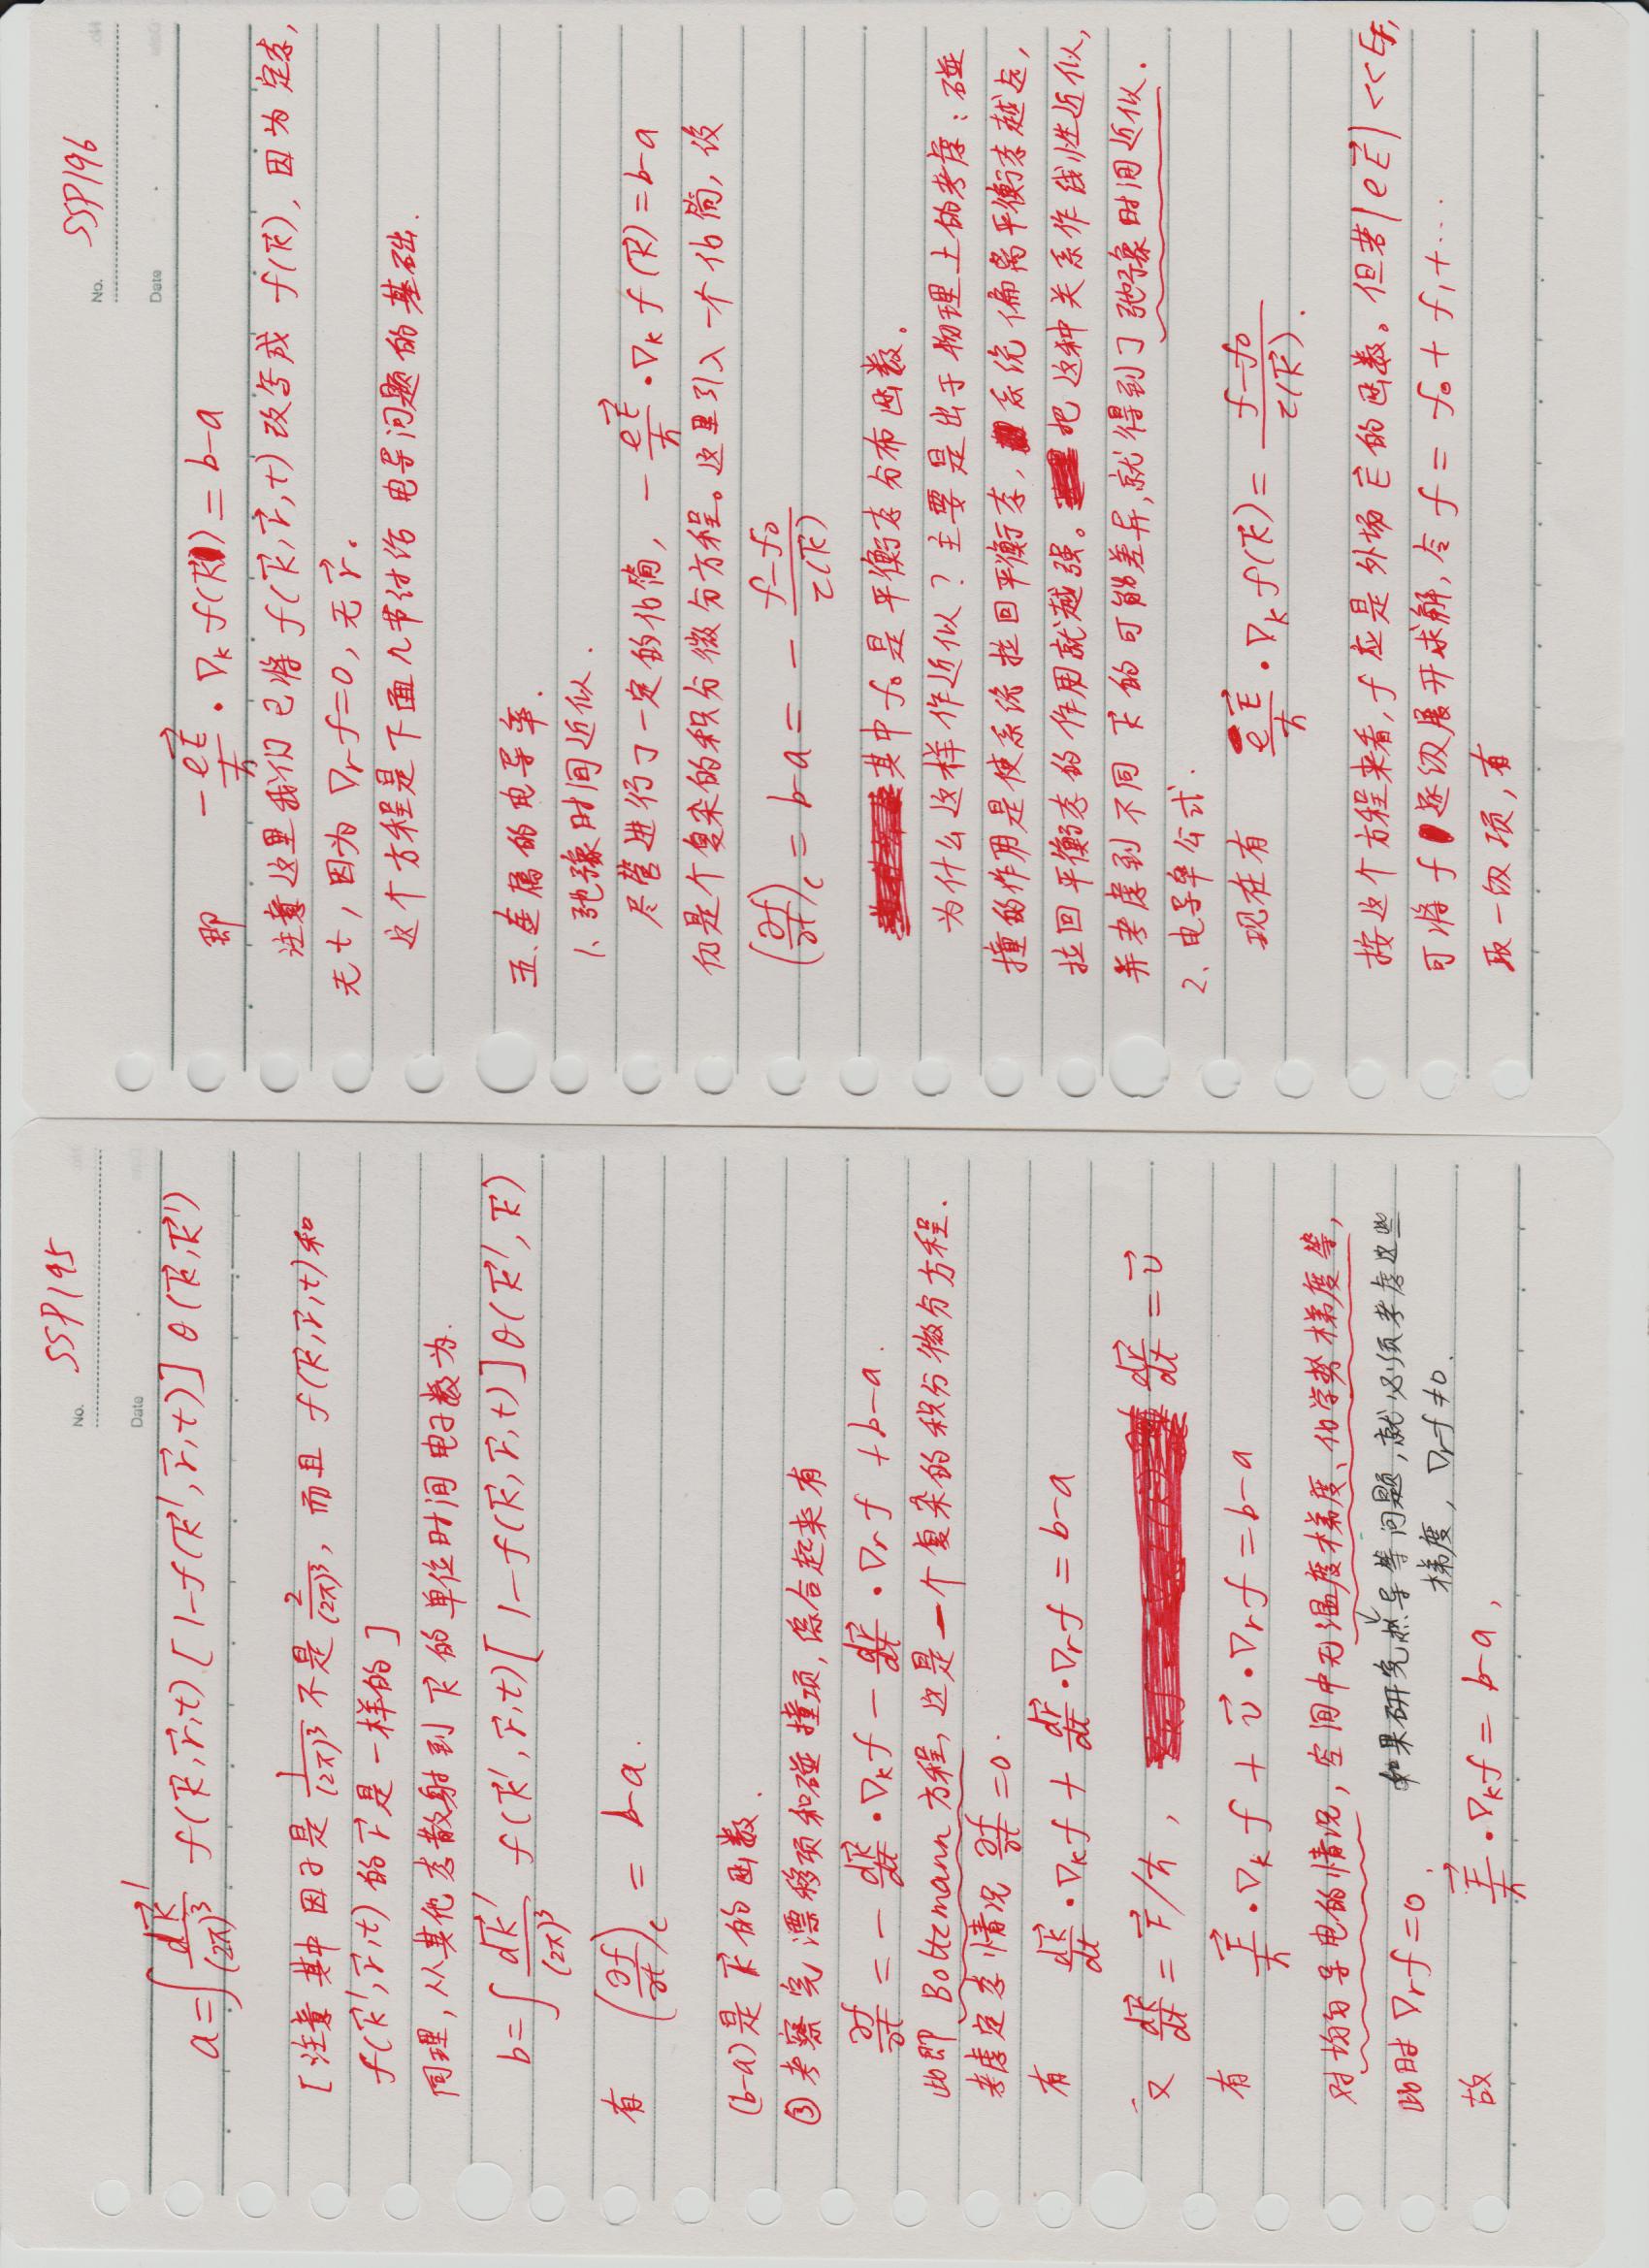 No. SSP195
Date
a=∫ dk⃗′/(2π)³ f(k⃗,r⃗,t) [1-f(k⃗′,r⃗,t)] θ(k⃗,k⃗′)
[注意 其中因子是 1/(2π)³ 不是 2/(2π)³, 而且 f(k⃗,r⃗,t)和
f(k⃗′,r⃗,t)的r⃗是一样的]
同理,从其他态散射到 k⃗ 的单位时间电子数为.
b=∫ dk⃗′/(2π)³ f(k⃗′,r⃗,t)[1-f(k⃗,r⃗,t)]θ(k⃗′,k⃗)
有 (∂f/∂t)c = b-a.
(b-a)是 k⃗ 的函数.
③考察完漂移项和碰撞项,综合起来有
∂f/∂t = - dk⃗/dt · ∇k f - dr⃗/dt · ∇r f + b-a.
此即 Boltzmann 方程,这是一个复杂的积分微分方程.
考虑定态情况 ∂f/∂t =0.
有 dk⃗/dt · ∇k f + dr⃗/dt · ∇r f = b-a
又 dk⃗/dt = F⃗/ℏ, dr⃗/dt = v⃗
有 F⃗/ℏ · ∇k f + v⃗ · ∇r f = b-a
对均匀导电的情况,空间中无温度梯度、化学势梯度等,
此时 ∇r f=0.
如果研究热导等问题,就必须考虑这些
梯度, ∇r f≠0.
故 F⃗/ℏ · ∇k f = b-a,
No. SSP196
Date
即 -eE⃗/ℏ · ∇k f(k⃗) = b-a
注意这里我们已将 f(k⃗,r⃗,t)改写成 f(k⃗), 因为定态,
无t, 因为 ∇r f=0, 无r⃗。
这个方程是下面几节讨论电导问题的基础.
五.金属的电导率.
1、弛豫时间近似.
尽管进行了一定的化简, - eE⃗/ℏ · ∇k f(k⃗)=b-a
仍是个复杂的积分微分方程。这里引入一个化简,设
(∂f/∂t)c = b-a = - (f-f₀)/τ(k⃗)
其中 f₀是平衡态分布函数。
为什么这样作近似?主要是出于物理上的考虑:碰
撞的作用是使系统拉回平衡态,系统偏离平衡态越远,
拉回平衡态的作用就越强。把这种关系作线性近似,
并考虑到不同 k⃗ 的可能差异,就得到了弛豫时间近似.
2、电导率公式.
现在有 eE⃗/ℏ · ∇k f(k⃗)= (f-f₀)/τ(k⃗).
按这个方程来看,f应是外场 E⃗ 的函数。但若|eE⃗|<<EF,
可将 f 逐级展开求解,令 f = f₀+f₁+…
取一级项,有